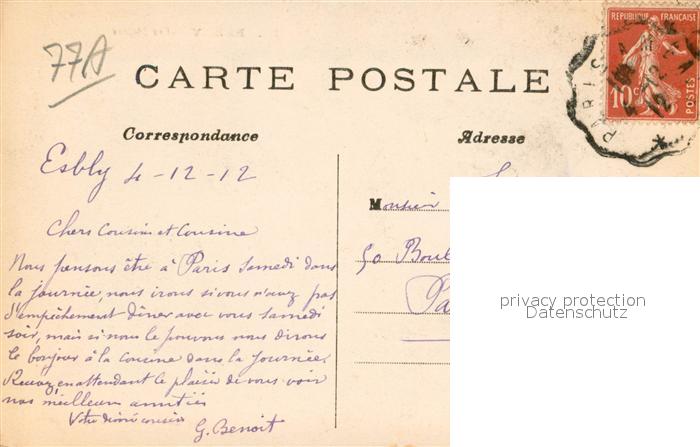 77A
CARTE POSTALE
REPUBLIQUE FRANÇAISE
10c
POSTES
PARIS
12
Correspondance
Adresse
Esbly 4-12-12
Monsieur
50 Boul
Pa
Chers Cousin et Cousine
Nous pensons être à Paris Samedi dans
la journée, nous irons si vous n'avez pas
d'empêchement diner avec vous samedi
soir, mais si nous le pouvons nous dirons
le bonjour à la cousine dans la journée.
Recevez en attendant le plaisir de vous voir
nos meilleurs amitiés
Votre cousin
G. Benoit
privacy protection
Datenschutz